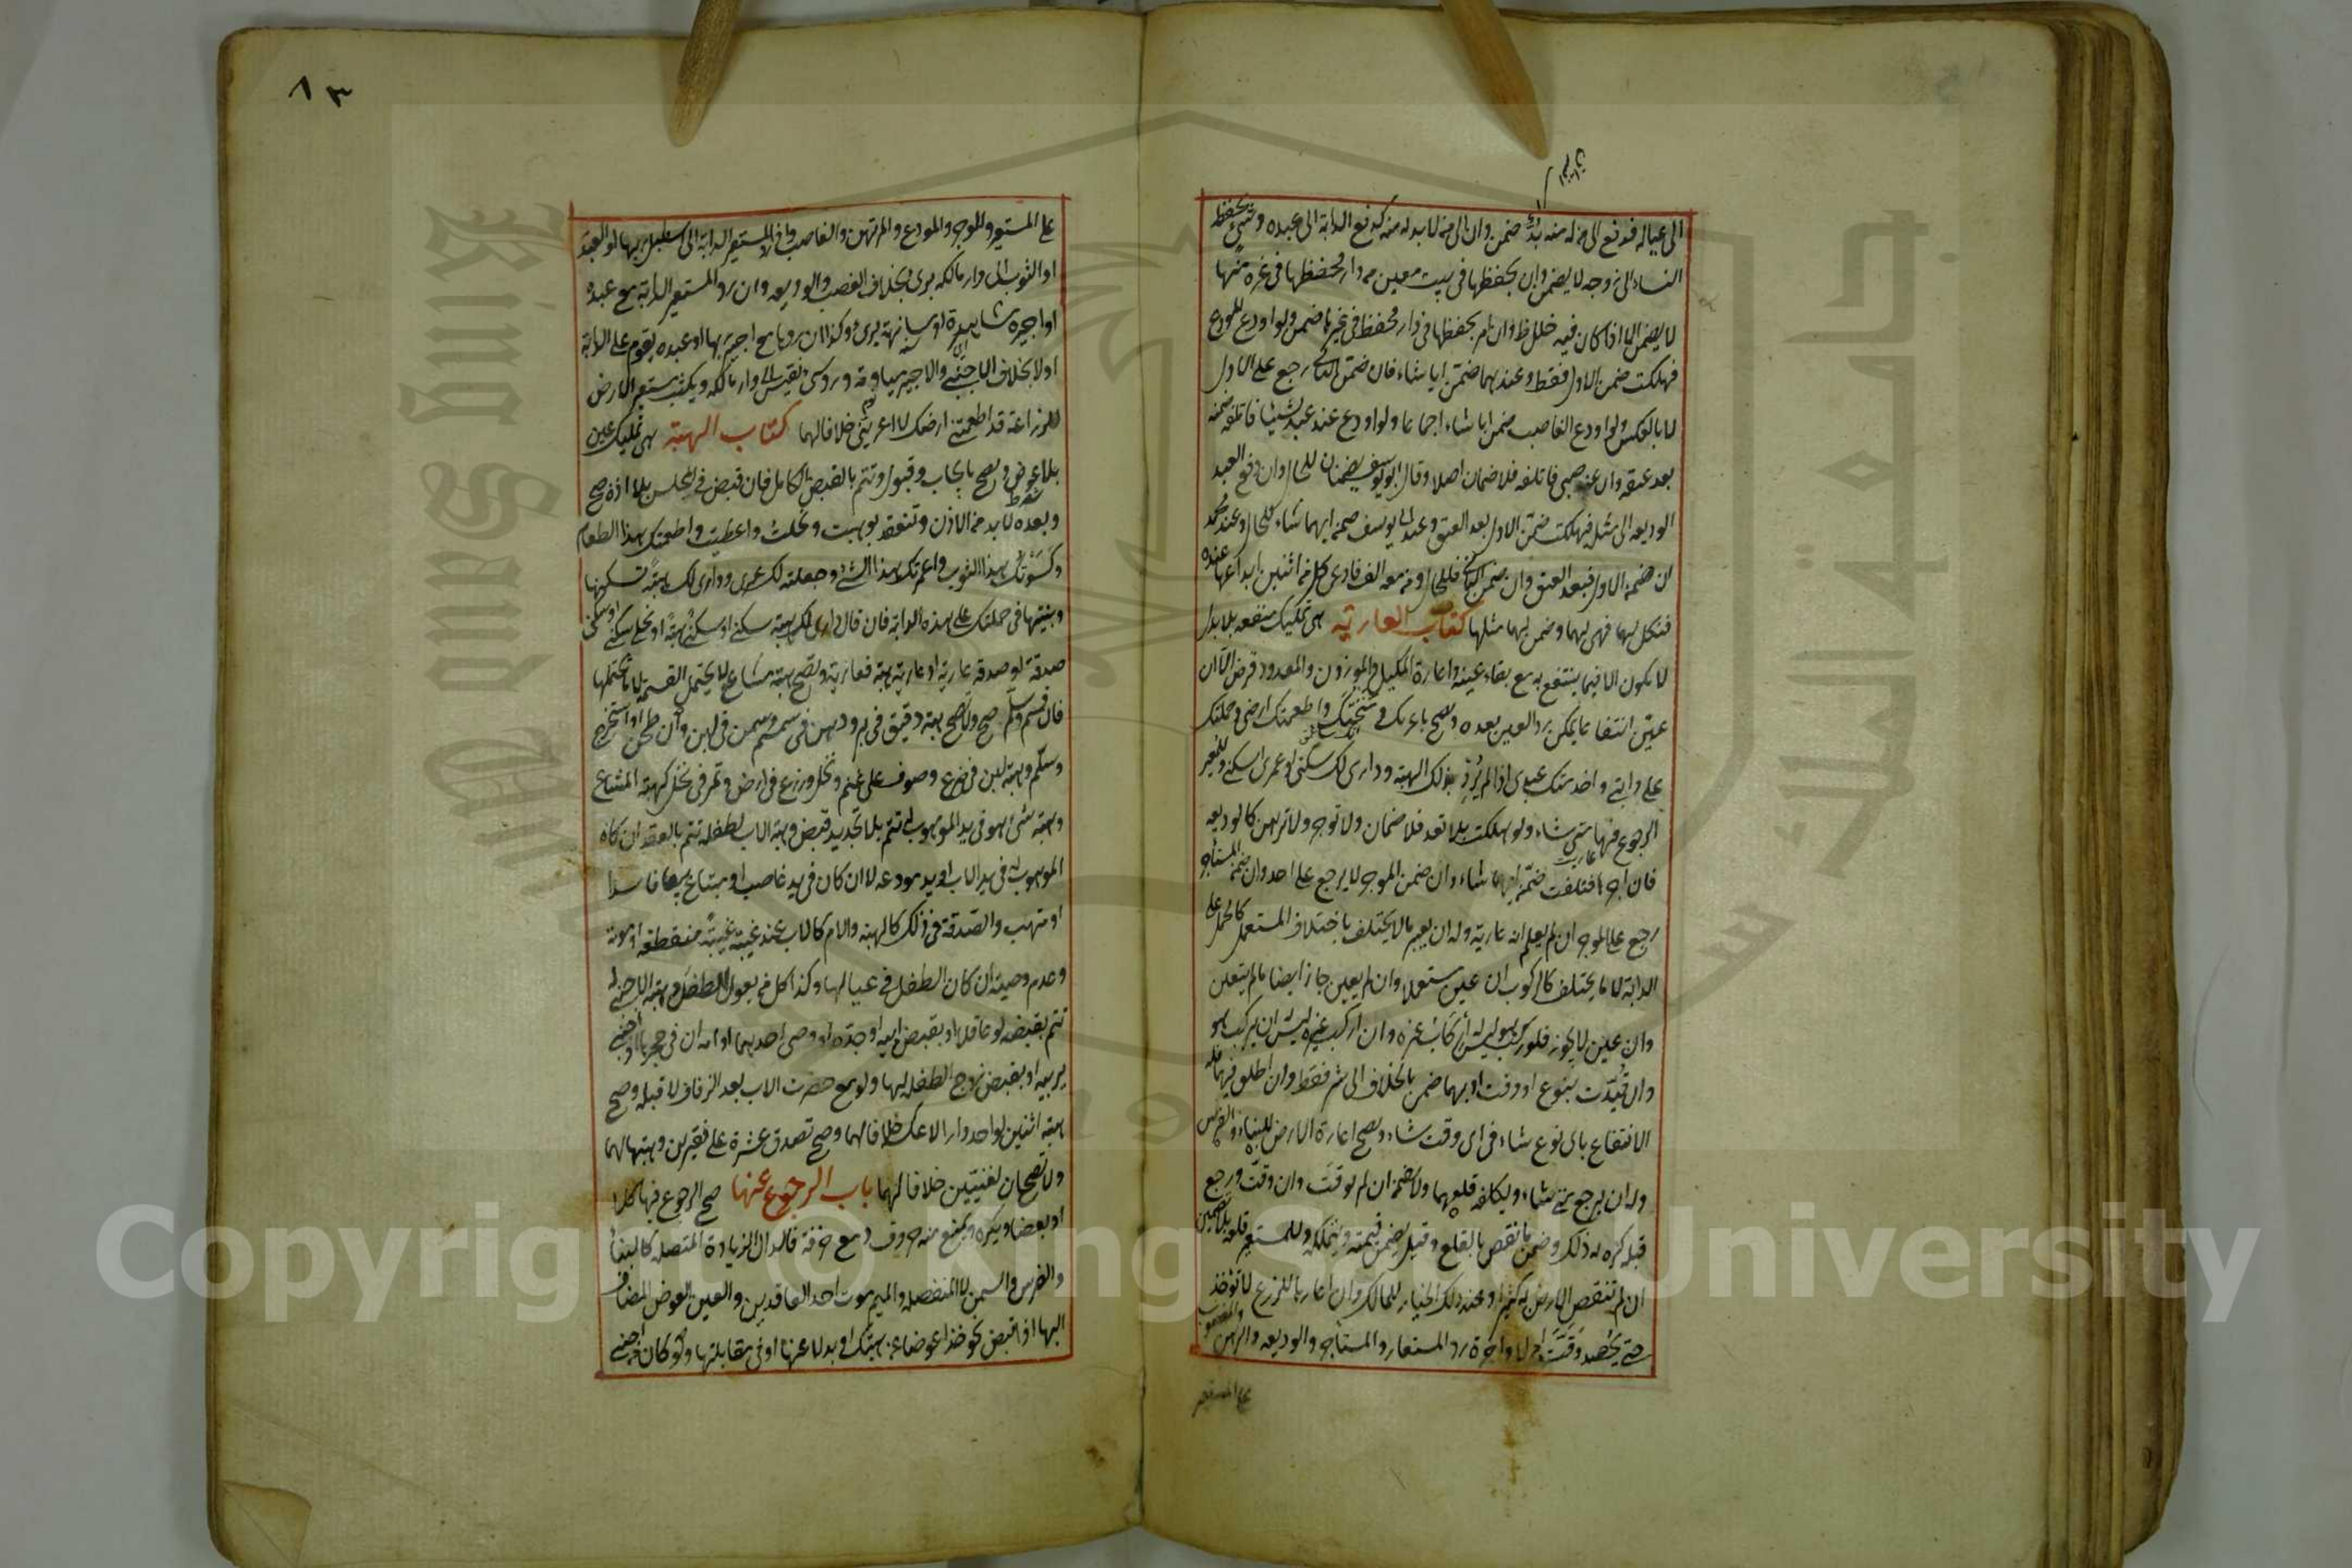 الى عياله فدفع الى من له منه بدّ ضمن وان الى من لا بد له منه كدفع الدابة الى عبده وشئ يحفظ
النساء الى زوجه لا يضمن وان بحفظها في بيت معين من دار فحفظها في غيره منها
لا يضمن الا اذا كان فيه خلل ظ وان امر بحفظها في دار فحفظ في غيرها ضمن ولو اودع المودع
فهلكت ضمن الاول فقط وعندهما ضمن ايا شاء فان ضمن الثاني رجع على الاول
لا بالعكس ولو اودع الغاصب ضمن ايا شاء اجماعا ولو اودع عند عبد شيئا فاتلفه ضمنه
بعد عتقه وان عند صبي فاتلفه فلا ضمان اصلا وقال ابو يوسف يضمنان للحال وان دفع العبد
الوديعه الى مثله فهلكت ضمن الاول بعد العتق وعند ابي يوسف ضمن ايهما شاء للحال وعند محمد
ان ضمن الاول فبعد العتق وان ضمن الثاني فللحال ومن معه الف فادعى كل من اثنين ايداعها عنده
فنكل لهما فهي لهما وضمن لهما مثلها كتاب العارية هي تمليك منفعه بلا بدل
لا يكون الا فيما ينتفع به مع بقاء عينه واعارة المكيل والموزون والمعدود قرض الا ان
عيّن انتفاعا يمكن رد العين بعده ويصح باعرتك ومنحتك واطعمتك ارضي وحملتك
على دابتي واخدمتك عبدي اذا لم يُرِد بذلك الهبة وداري لك سكنى او عمرى سكنى وللمعير
الرجوع فيها متى شاء ولو هلكت بلا تعد فلا ضمان ولا توجر ولا ترهن كالوديعه
فان آجرها فتلفت ضمّن ايهما شاء وان ضمن الموجر لا يرجع على احد وان ضمن المستأجر
رجع على الموجر ان لم يعلم انه عارية وله ان يعير ما لا يختلف باختلاف المستعمل كالحمل على
الدابة لا ما يختلف كالركوب ان عين مستعملا وان لم يعين جاز ايضا ما لم يتعين
وان عين لا يجوز فلو ركب هو ليس له إركاب غيره وان اركب غيره ليس له ان يركب هو
وان قُيّدت بنوع او وقت او بهما ضمن بالخلاف الى شر فقط وان اطلق فيهما فله
الانتفاع باي نوع شاء في اي وقت شاء ويصح اعارة الارض للبناء والغرس
وله ان يرجع متى شاء ويكلفه قلعهما ولا يضمن ان لم يوقت وان وقّت ورجع
قبله كره له ذلك وضمن ما نقص بالقلع وقيل يضمن قيمته ويتملكه وللمستعير قلعه بلا تضمين
ان لم تنقص الارض به كثيرا وعند ذلك الخيار للمالك وان اعارها للزرع لا تؤخذ
حتى يحصد وقّت ام لا واجرة رد المستعار والمستأجر والوديعه والرهن والمغصوب
على المستعير
٨٣
على المستعير والموجر والمودع والمرتهن والغاصب واذا رد المستعير الدابة الى اسطبل ربها او العبد
او الثوب الى دار مالكه برئ بخلاف الغصب والوديعه وان رد المستعير الدابة مع عبده
او اجيره مشاهرة او مسانهة برئ وكذا ان ردها مع اجير ربها او عبده يقوم على الدابة
او لا بخلاف الاجنبي والاجير مياومة ورد شئ نفيس الى دار مالكه ويكتب مستعير الارض
للزراعة قد اطعمتني ارضك لا اعرتني خلافا لهما كتاب الهبة هي تمليك عين
بلا عوض ويصح بايجاب وقبول وتتم بالقبض الكامل فان قبض في المجلس بلا اذن صح
وبعده لا بد من الاذن وتنعقد بوهبت ونحلت واعطيت واطعمتك هذا الطعام
وكسوتك هذا الثوب واعمرتك هذا الشئ وجعلته لك عمرى وداري لك هبة تسكنها
وبنيتها في حملتك على هذه الدابة فان قال داري لك هبة سكنى او سكنى هبة او نحلى سكنى او سكنى
صدقة او صدقه عارية او عارية هبة فعارية وتصح هبة مشاع لا يحتمل القسمة لا ما يحتملها
فان قسم وسلّم صح ولا تصح هبة دقيق في بر ودهن في سمسم وسمن في لبن وان طحن او استخرج
وسلّم وهبة لبن في ضرع وصوف على غنم ونخل وزرع في ارض وتمر في نخل كهبة المشاع
وهبة شئ هو في يد الموهوب له تتم بلا تجديد قبض وهبة الاب لطفله تتم بالعقد ان كان
الموهوب في يد الاب او يد مودعه لا ان كان في يد غاصب او مبتاع بيعا فاسدا
او متهب والصدقة في ذلك كالهبة والام كالاب عند غيبته غيبةً منقطعة او موته
وعدم وصيه ان كان الطفل في عيالها وكذا كل من يعول الطفل وهبة الاجنبي له
تتم بقبضه لو عاقلا او بقبض ابيه او جدّه او وصي احدهما او امه ان في حجرها او اجنبي
يربيه او بقبض زوج الطفله لها ولو مع حضرت الاب بعد الزفاف لا قبله وصح
هبة اثنين لواحد دارا لا عكسه خلافا لهما وصح تصدق عشرة على فقيرين وهبتها لهما
ولا تصحان لغنيّين خلافا لهما باب الرجوع عنها صح الرجوع فيها كلا
او بعضا ويكره ويمنع منه حروف دمع خزقة فالدال الزيادة المتصلة كالبناء
والغرس والسمن لا المنفصله والميم موت احد العاقدين والعين العوض المضاف
اليها اذا قبض نحو خذ عوضا عن هبتك او بدلا عنها او في مقابلتها ولو كان من اجنبي
Copyright © King Saud University
King Saud University
جامعة الملك سعود